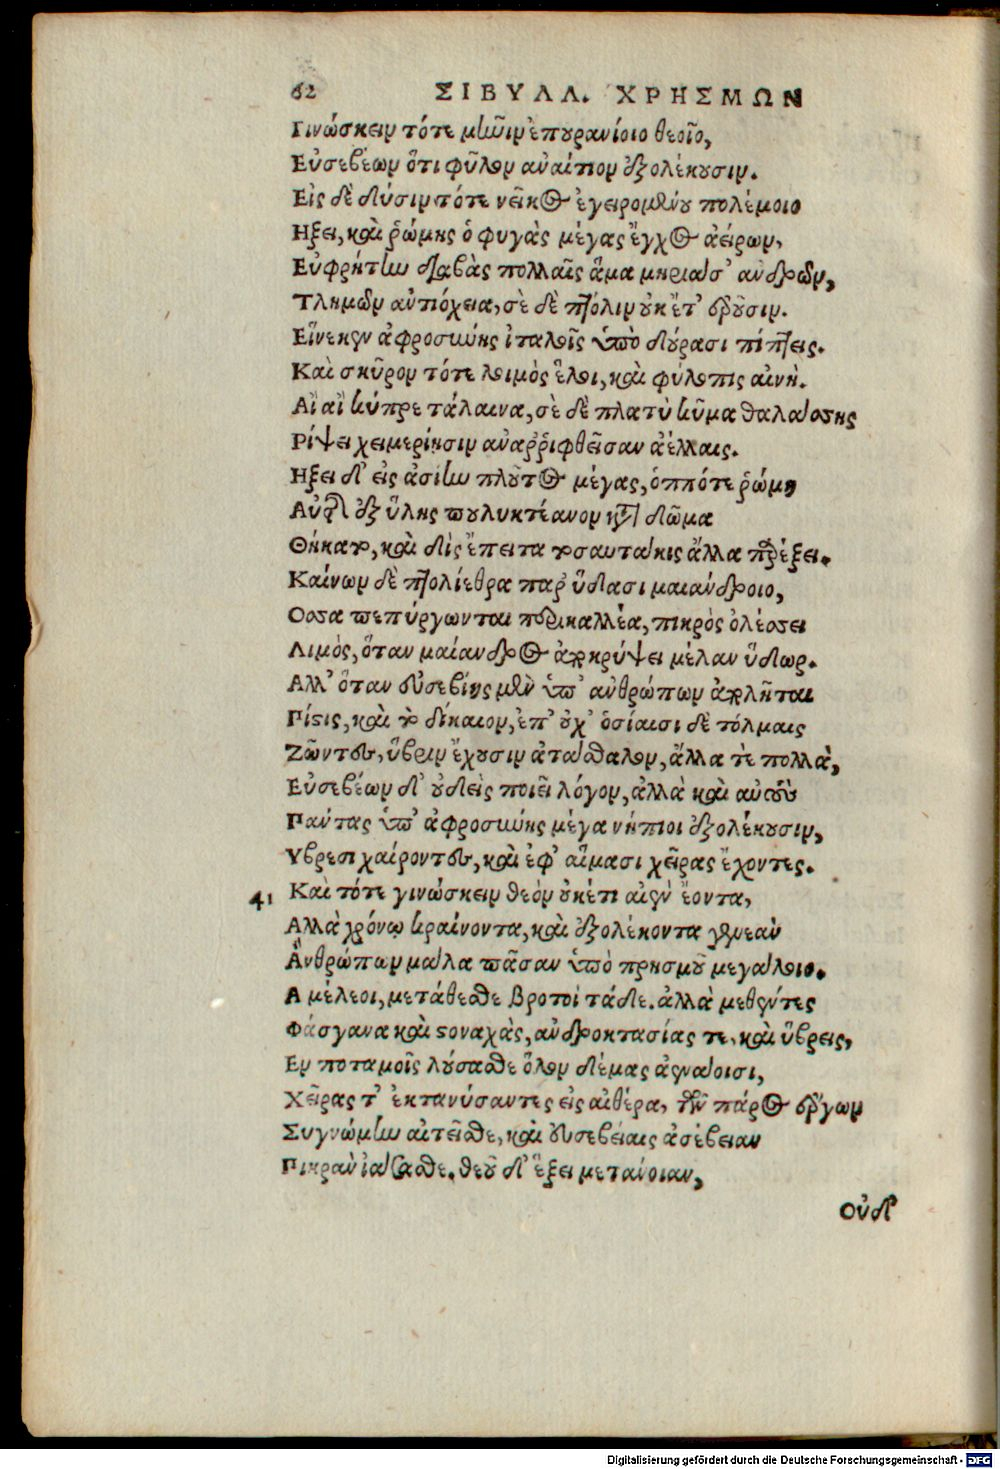 62 ΣΙΒΥΛΛ. ΧΡΗΣΜΩΝ
Γινώσκειν τότε μῆνιν ἐπουρανίοιο θεοῖο,
Εὐσεβέων ὅτι φῦλον ἀναίτιον ἐξολέκουσιν.
Εἰς δὲ δύσιν τότε νεῖκος ἐγειρομένου πολέμοιο
Ηξει, καὶ ῥώμης ὁ φυγὰς μέγας ἔγχος ἀείρων,
Εὐφρήτην διαβὰς πολλαῖς ἅμα μυριάσ' ἀνδρῶν,
Τλημων ἀντιόχεια, σὲ δὲ πτόλιν οὐκ ἔτ' ἐροῦσιν.
Εἵνεκεν ἀφροσύνης ἰταλοῖς ὑπὸ δούρασι πίπτεις.
Καὶ σκῦρον τότε λοιμὸς ἕλοι, καὶ φύλοπις αἰνή.
Αἲ αἲ κύπρε τάλαινα, σὲ δὲ πλατὺ κῦμα θαλάσσης
Ρίψει χειμερίησιν ἀναῤῥιφθεῖσαν ἀέλλαις.
Ηξει δ' εἰς ἀσίην πλοῦτος μέγας, ὁππότε ῥώμη
Αὐτὴ ἐξ ὕλης πουλυκτέανον κατὰ δῶμα
Θήκατο, καὶ δὶς ἔπειτα τοσαυτάκις ἄλλα παρέξει.
Καίνων δὲ πτολίεθρα παρ' ὕδασι μαιάνδροιο,
Οσσα πεπύργωνται περικαλλέα, πικρὸς ὀλέσσει
Λιμὸς, ὅταν μαίανδρος ἀποκρύψει μέλαν ὕδωρ.
Αλλ' ὅταν εὐσεβίης μὲν ὑπ' ἀνθρώπων ἀπολῆται
Πίστις, καὶ τὸ δίκαιον, ἐπ' οὐχ' ὁσίαισι δὲ τόλμαις
Ζῶντες, ὕβριν ἔχουσιν ἀτάσθαλον, ἄλλα τὲ πολλὰ,
Εὐσεβέων δ' οὐδεὶς ποιεῖ λόγον, ἀλλὰ καὶ αὐτοὺς
Πάντας ὑπ' ἀφροσύνης μέγα νήπιοι ἐξολέκουσιν,
Υβρεσι χαίροντες, καὶ ἐφ' αἵμασι χεῖρας ἔχοντες.
41 Καὶ τότε γινώσκειν θεὸν οὐκέτι αἰὲν ἔοντα,
Αλλὰ χρόνῳ κραίνοντα, καὶ ἐξολέκοντα γενεὰν
Ἀνθρώπων μάλα πᾶσαν ὑπὸ πρησμοῦ μεγάλοιο.
Α μέλεοι, μετάθεσθε βροτοὶ τάδε. ἀλλὰ μεθέντες
Φάσγανα καὶ στοναχὰς, ἀνδροκτασίας τε, καὶ ὕβρεις,
Εν ποταμοῖς λούσασθε ὅλον δέμας ἀενάοισι,
Χεῖρας τ' ἐκτανύσαντες εἰς αἰθέρα, τῶν πάρος ἔργων
Συγνώμην αἰτεῖσθε, καὶ εὐσεβείαις ἀσέβειαν
Πικρὰν ἰάσασθε. θεοῦ δ' ἕξει μετάνοιαν,
Οὐδ'